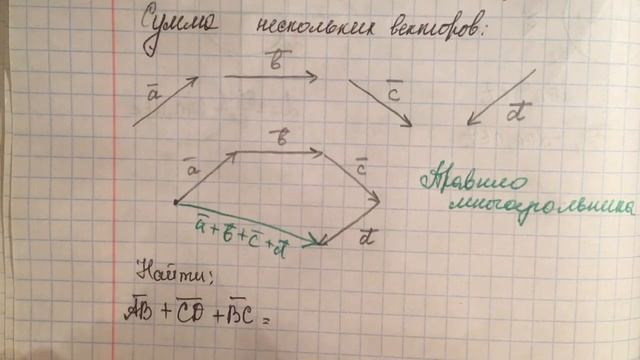 Сумма нескольких векторов:
a̅ b̅ c̅ d̅
a̅ b̅ c̅ d̅
a̅ + b̅ + c̅ + d̅
Правило
многоугольника
Найти:
A̅B̅ + C̅D̅ + B̅C̅ =